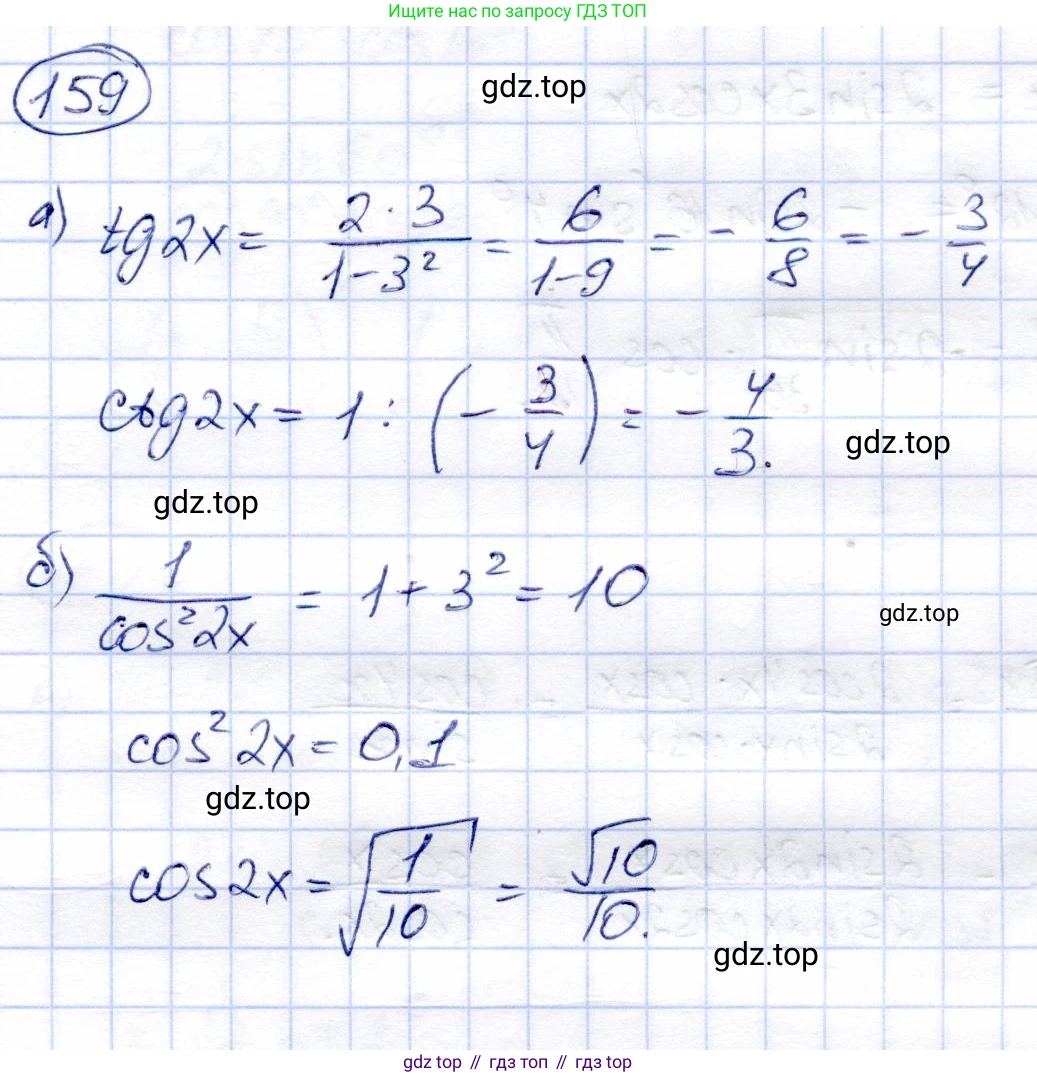 Ищите нас по запросу ГДЗ ТОП
159
gdz.top
а) tg2x = 2·3/1-3² = 6/1-9 = - 6/8 = - 3/4
ctg2x = 1 : (- 3/4) = - 4/3.
gdz.top
gdz.top
б) 1/cos²2x = 1+3² = 10
gdz.top
cos²2x = 0,1
gdz.top
cos2x = √1/10 = √10/10.
gdz.top
gdz.top // гдз топ // гдз top